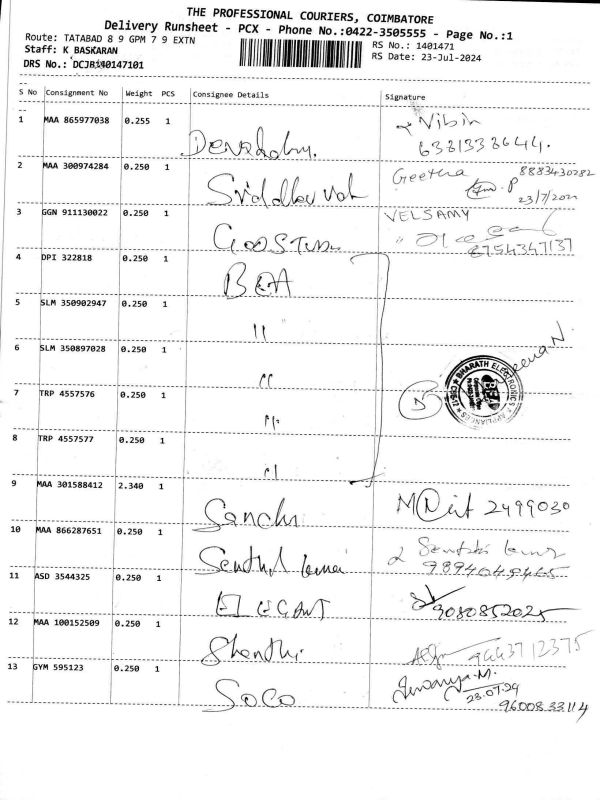 THE PROFESSIONAL COURIERS, COIMBATORE
Delivery Runsheet - PCX - Phone No.:0422-3505555 - Page No.:1
Route: TATABAD 8 9 GPM 7 9 EXTN
RS No.: 1401471
Staff: K BASKARAN
RS Date: 23-Jul-2024
S No Consignment No Weight PCS Consignee Details Signature
1 MAA 865977038 0.255 1 Nibin
2 MAA 300974284 0.250 1 Geetha 8883430282
3 GGN 911130022 0.250 1 VELSAMY
8754347137
4 DPI 322818 0.250 1 BEA
5 SLM 350902947 0.250 1 "
6 SLM 350897028 0.250 1 "
7 TRP 4557576 0.250 1 "
8 TRP 4557577 0.250 1 "
BHARATH ELECTRONICS & APPLIANCES
BEA
9 MAA 301588412 2.340 1 2499030
10 MAA 866287651 0.250 1 Senthil kumar
11 ASD 3544325 0.250 1 9080852025
12 MAA 100152509 0.250 1 Shanthi 9443712375
13 GYM 595123 0.250 1 SOCO
23.07.24
9600833114